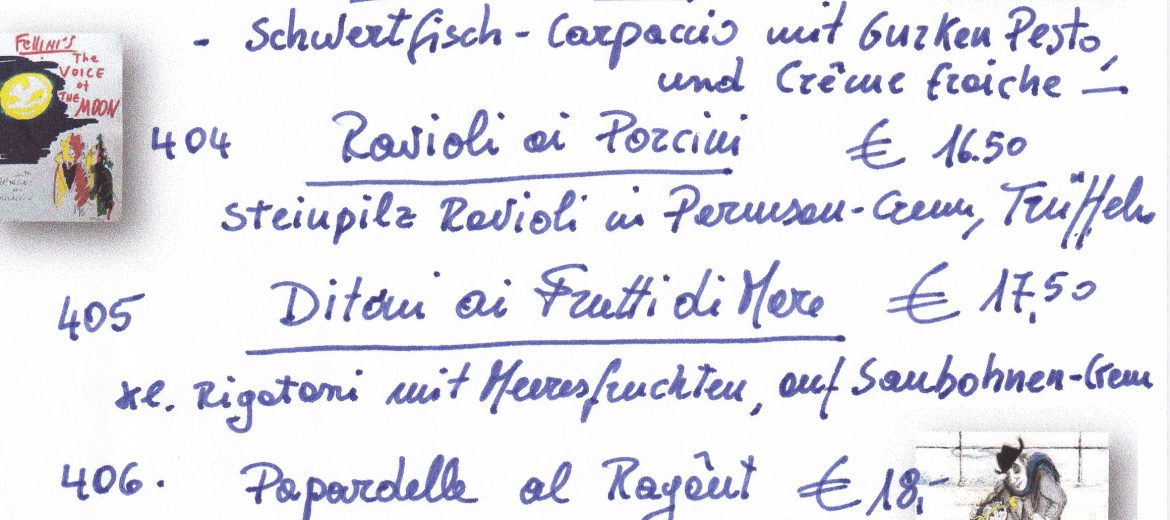 - Schwertfisch - Carpaccio mit Gurken Pesto,
und Crême fraiche -
Fellini's
The
VOICE
of
THE MOON
404 Ravioli ai Porcini € 16.50
Steinpilz Ravioli in Parmesan-Crem, Trüffeln
405 Ditoni ai Frutti di Mare € 17,50
kl. Rigatoni mit Meeresfruchten, auf Saubohnen-Crem
406. Papardelle al Ragôut € 18,-